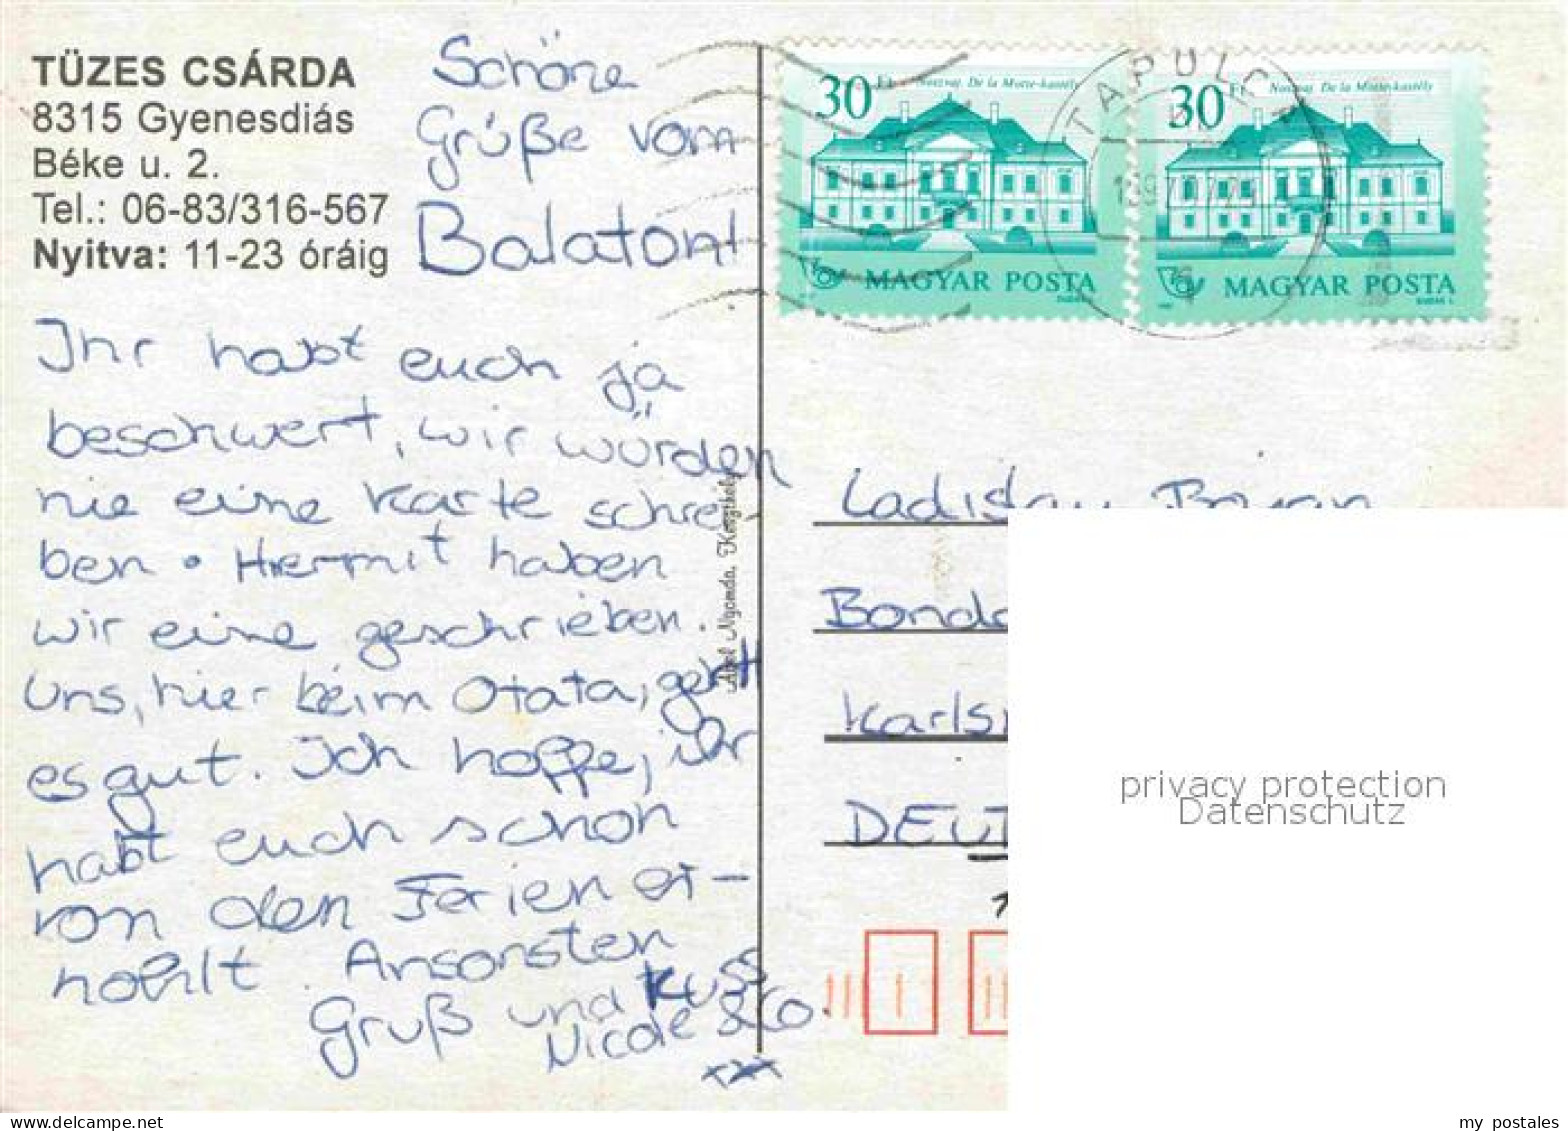 TÜZES CSÁRDA
8315 Gyenesdiás
Béke u. 2.
Tel.: 06-83/316-567
Nyitva: 11-23 óráig
Schöne
Grüße vom
Balaton!
Ihr habt euch ja
beschwert, wir würden
nie eine Karte schrei-
ben. Hiermit haben
wir eine geschrieben.
Uns, hier beim Otata, geht
es gut. Ich hoffe, ihr
habt euch schon
von den Ferien er-
hohlt. Ansonsten
Gruß und Kuss
Nicole & Co.
Nyomda, Keszthely
30 Ft Noszvaj De la Motte-kastély
MAGYAR POSTA
30 Ft Noszvaj De la Motte-kastély
MAGYAR POSTA
TAPOLCA
Ladislav
Karls
DEUT
privacy protection
Datenschutz
my postales